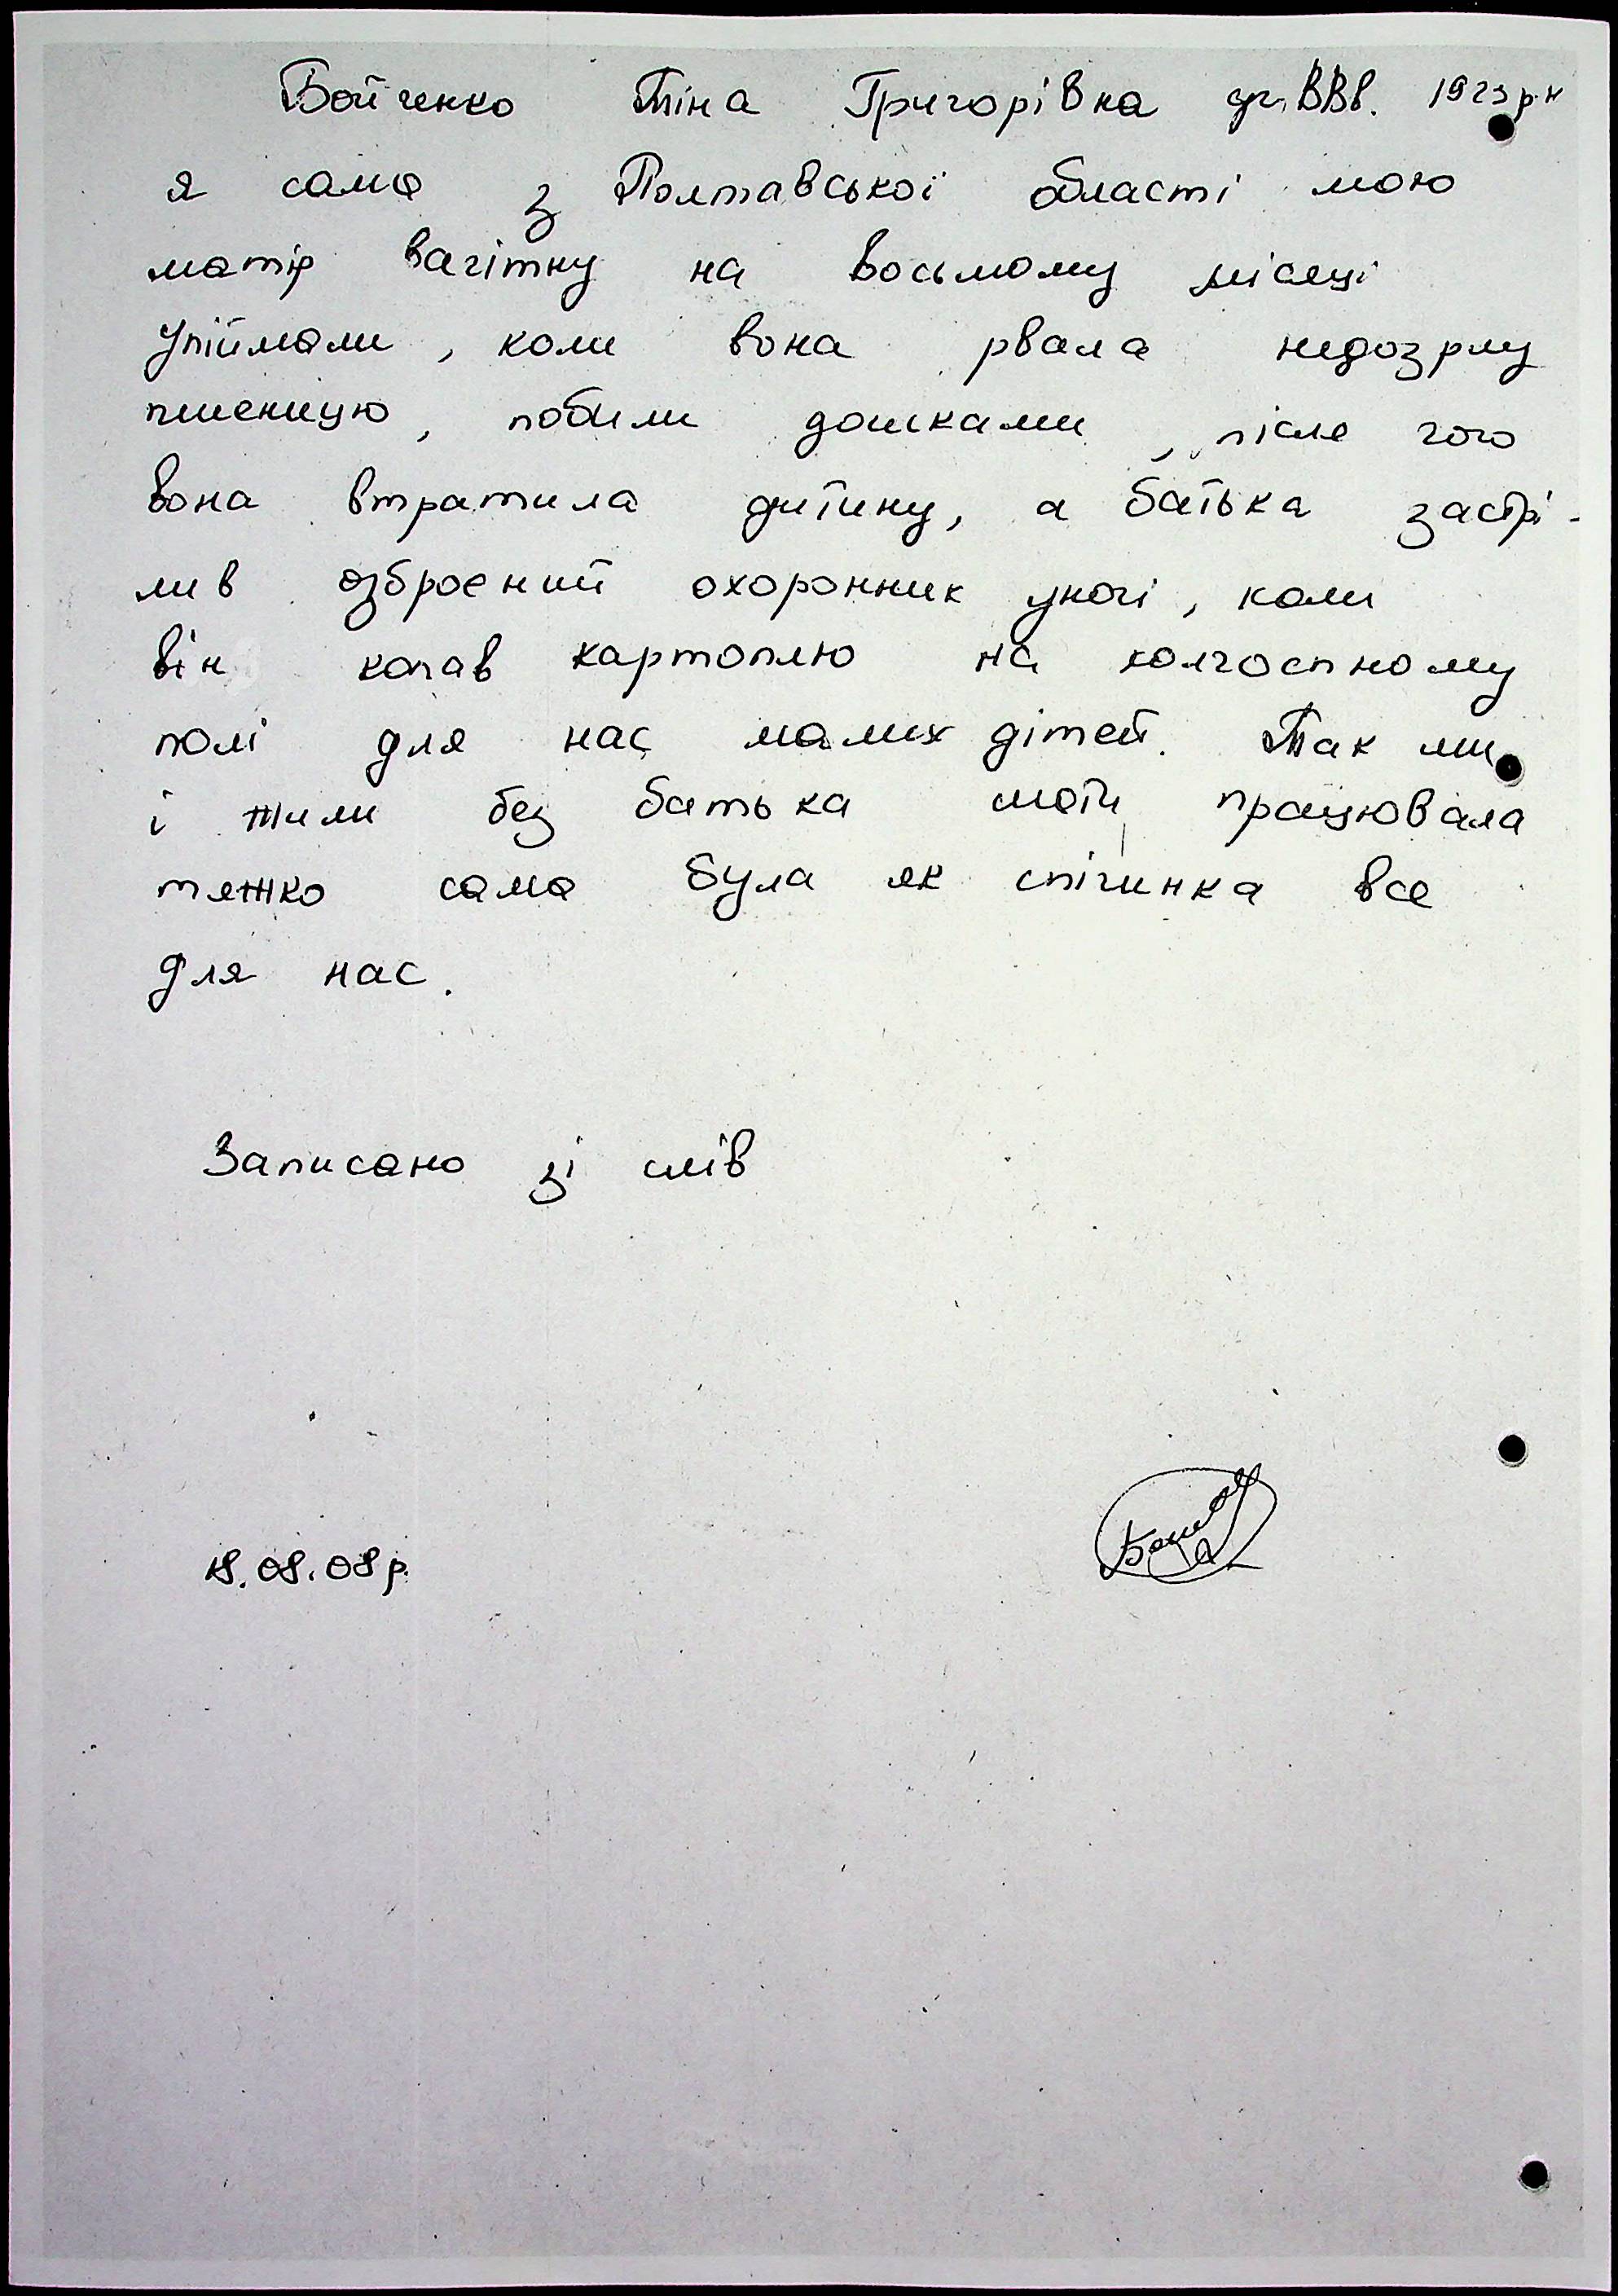 Бойченко Тіна Григорівна уч. ВВв. 1923 р.н
я сама з Полтавської області мою
матір вагітну на восьмому місяці
упіймали, коли вона рвала недозрілу
пшеницю, побили дошками, після чого
вона втратила дитину, а батька застрі-
лив озброєний охоронник уночі, коли
він копав картоплю на колгоспному
полі для нас малих дітей. Так ми
і жили без батька мати працювала
тяжко сама була як спічинка все
для нас.
Записано зі слів
18.08.08 р.